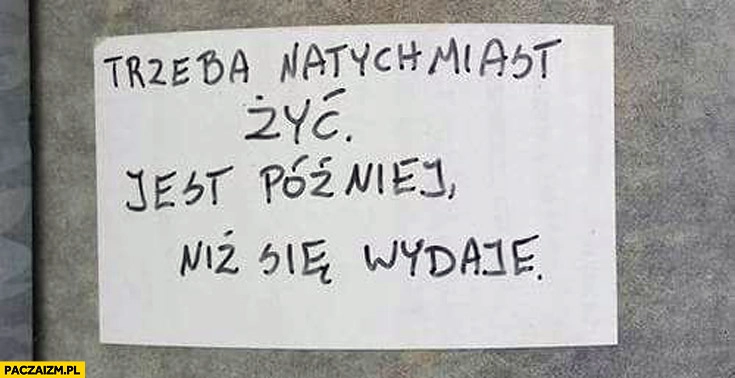 TRZEBA NATYCHMIAST
ŻYĆ.
JEST PÓŹNIEJ,
NIŻ SIĘ WYDAJE.
PACZAIZM.PL